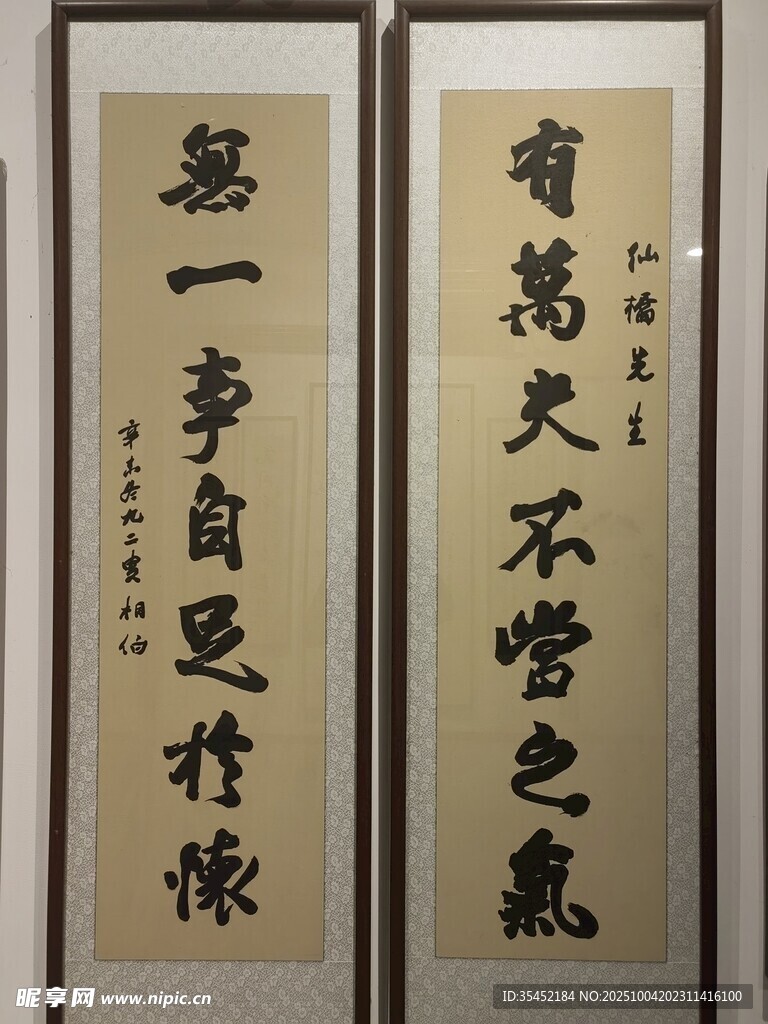 仙橋先生
有萬夫不當之氣
無一事自足於懷
辛未冬九二叟相伯
昵享网 www.nipic.cn
ID:35452184 NO:20251004202311416100